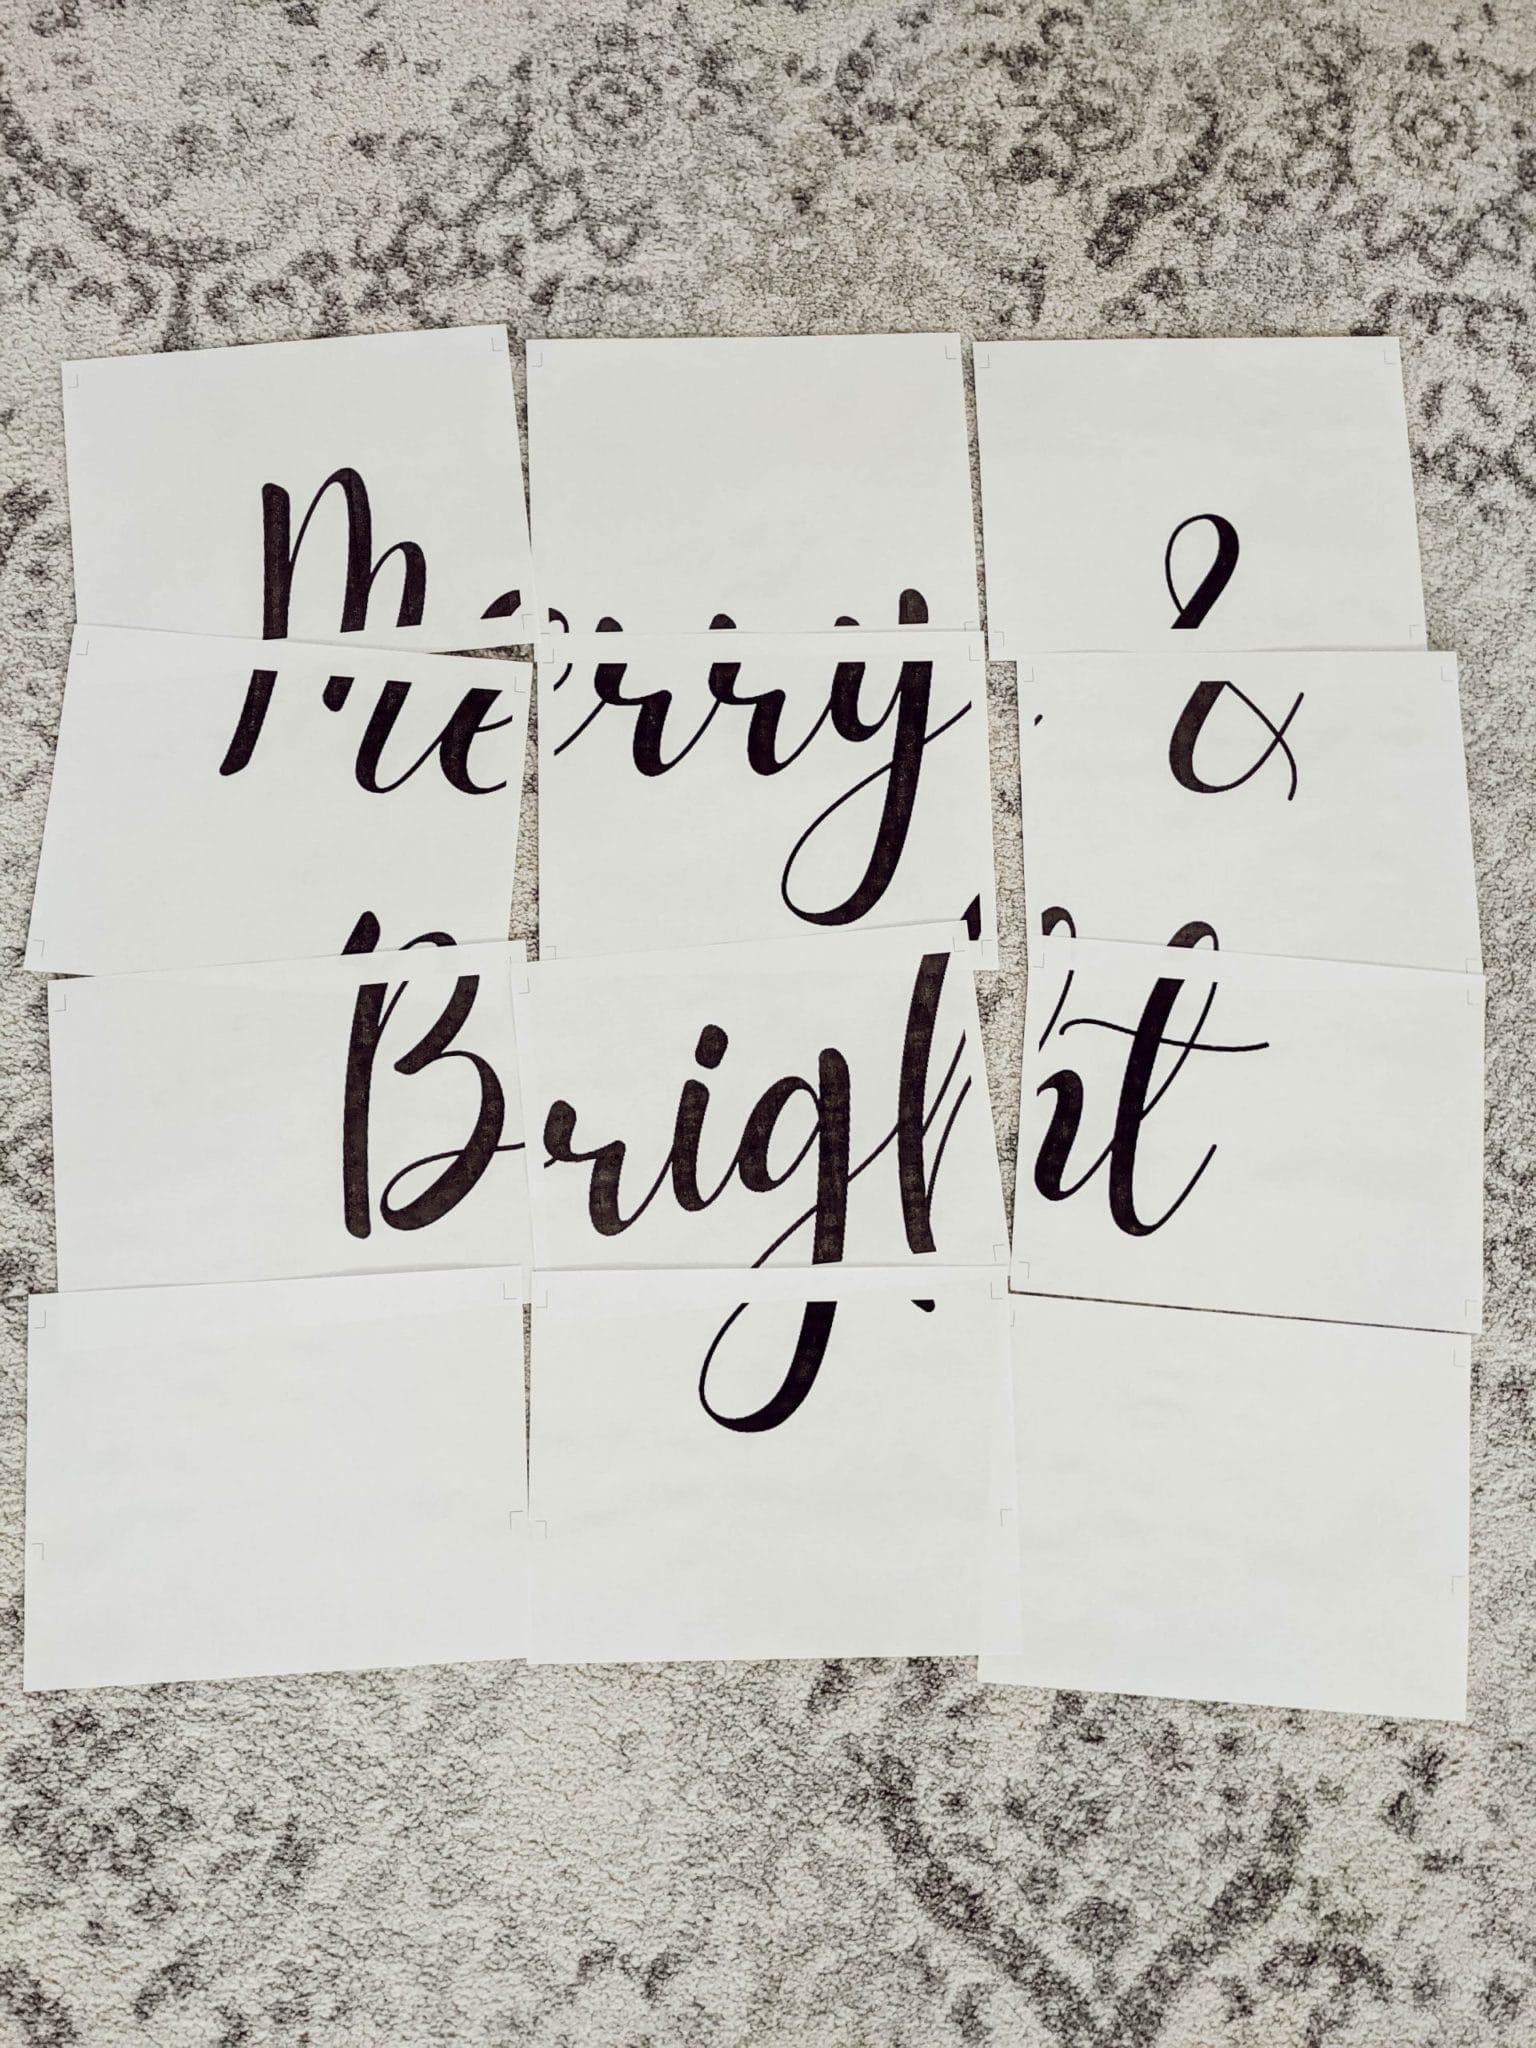 Merry &
Bright